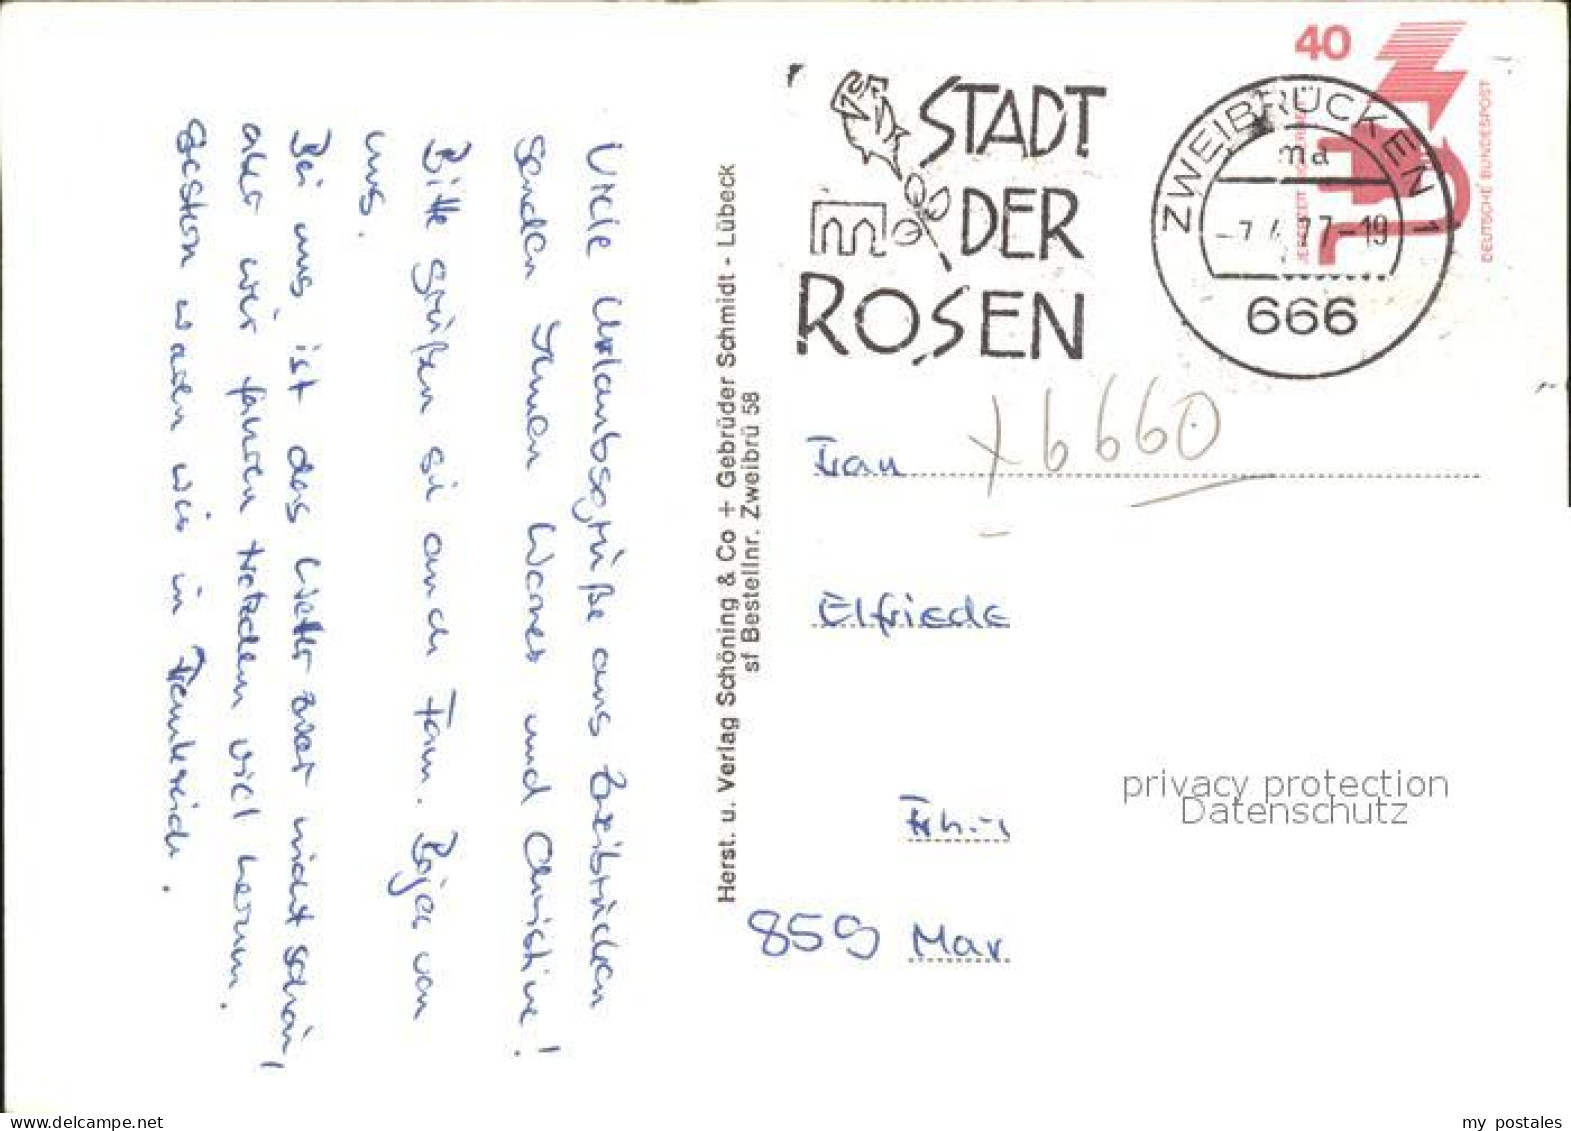 Viele Urlaubsgrüße aus Zweibrücken
senden Ihnen Werner und Christine!
Bitte grüßen sie auch Fam. Bojer von
uns.
Bei uns ist das Wetter zwar nicht schön,
aber wir fahren trotzdem viel herum.
Gestern waren wir in Frankreich.
Herst. u. Verlag Schöning & Co + Gebrüder Schmidt - Lübeck
sf Bestellnr. Zweibrü 58
STADT
DER
ROSEN
ZWEIBRÜCKEN 1
ma
-7.4.77-19
666
40
DEUTSCHE BUNDESPOST
JEDERZEIT SICHERHEIT
x 6660
Frau
Elfriede
859 Mar
privacy protection
Datenschutz
www.delcampe.net
my_postales